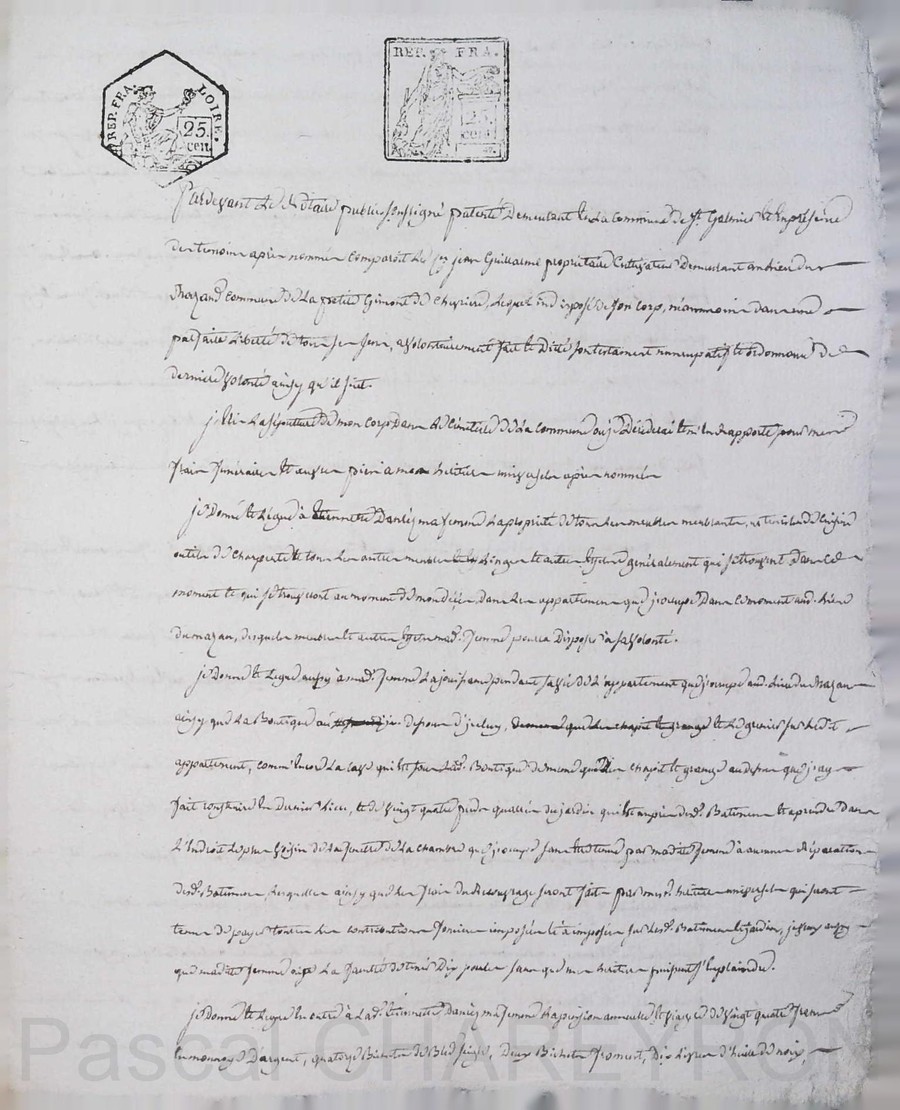 REP. FRA. LOIRE.
25. cen.
REP. FRA.
25 cen.
Pardevant le Notaire public soussigné patenté Demeurant en la commune de St. Galmier et En présence
des temoins après nommés Comparoit le Cen jean Guillaume propriétaire Cultivateur Demeurant au lieu du
Mazand Commune de La petite Gimont de Chevrieres, Lequel indisposé de son corp, néanmoins dans une
parfaite Liberté de tous ses sens, a volontairement fait et Dicté son testament nuncupatif et ordonnance de
derniere volonté ainsy qu'il suit.
j'elis La sépulture de mon Corps Dans le Cimetiere de La Commune ou je Décéderai et m'en rapporte pour mes
frais funéraires et œuvres pies à mes heritiers universels après nommés
je Donne et Legue à Etiennette Daniez ma femme La propriété de tous les meubles meublants, ustensiles de Cuisine
outils de Charpente et tous les autres meubles Linges et autres effets généralement qui se trouvent Dans ce
moment et qui se trouveront au moment de mon décès Dans les appartements que j'occupe Dans ce moment aud. lieu
du mazan, desquels meubles et autres effets mad. femme pourra Disposer à sa volonté.
je Donne et Legue aussy à mad. femme La jouissance pendant sa vie de L'appartement que j'occupe aud. Lieu du Mazan
ainsy que La Boutique au dessous d'jceluy, et Le grenier sur Ledit
appartement, comm'encore La Cave qui est sous Lad. Boutique de meme que Le chapit et grange au dessus que j'ay
fait construire en Dernier Lieu, et de vingt quatre pieds quarrés du jardin qui est auprès desd. Batimens et à prendre Dans
L'Endroit Le plus voisin de La fenetre de La chambre que j'occupe sans etre tenue par madite femme à aucunes Réparations
desd. Batimens, Lesquelles ainsy que Les frais du Recouvrage seront faits par mesd. heritiers universels qui seront
tenus de payer toutes Les contributions foncieres imposées et à imposer sur Lesd. Batimens et jardin, je veux aussy
que madite femme aye La faculté de tenir Dix poules sans que mes heritiers puissent s'En plaindre.
je Donne et Legue En outre à Lad. Etiennette Daniez ma femme La pension annuelle et viagere de vingt quatre francs
En monnoye D'argent, quatorze Bichets de Bled seigle, Deux Bichets froment, Dix Livres d'huile de noix,
Pascal CHAREYRON